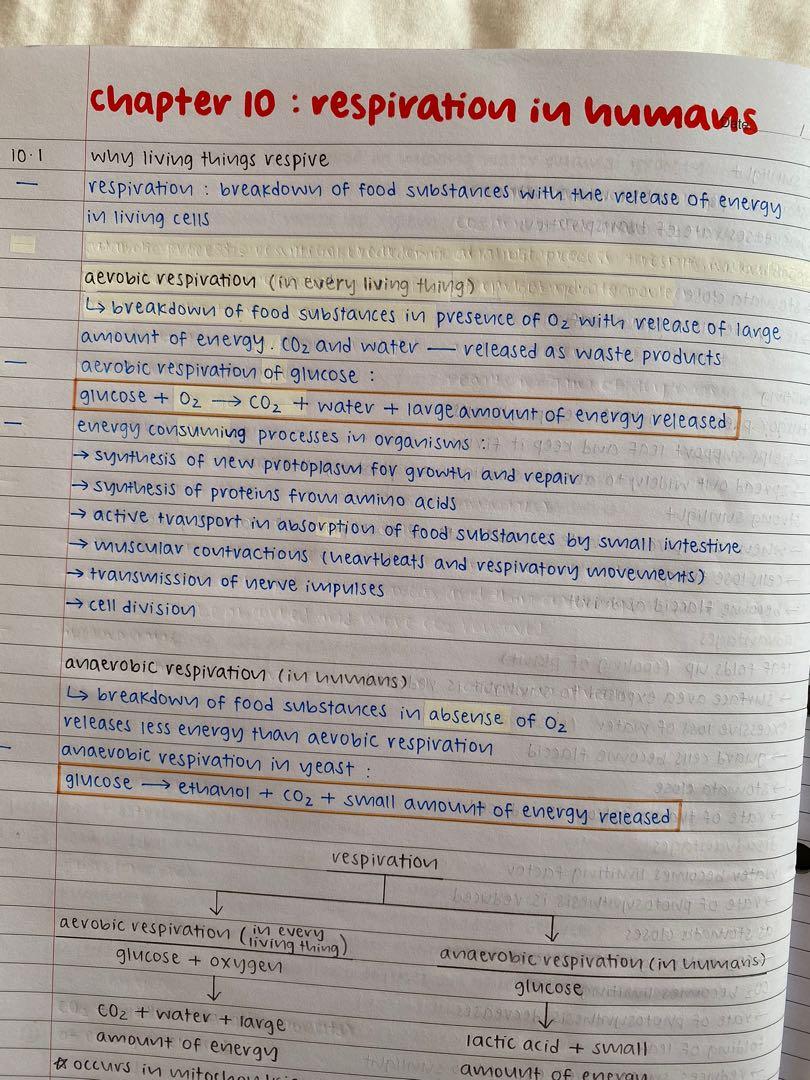 chapter 10 : respiration in humans
Date:
10.1 why living things respire
respiration : breakdown of food substances with the release of energy
in living cells
aerobic respiration (in every living thing)
↳ breakdown of food substances in presence of O₂ with release of large
amount of energy. CO₂ and water — released as waste products
aerobic respiration of glucose :
glucose + O₂ → CO₂ + water + large amount of energy released
energy consuming processes in organisms :
→ synthesis of new protoplasm for growth and repair
→ synthesis of proteins from amino acids
→ active transport in absorption of food substances by small intestine
→ muscular contractions (heartbeats and respiratory movements)
→ transmission of nerve impulses
→ cell division
anaerobic respiration (in humans)
↳ breakdown of food substances in absense of O₂
releases less energy than aerobic respiration
anaerobic respiration in yeast :
glucose → ethanol + CO₂ + small amount of energy released
respiration
aerobic respiration (in every living thing)
glucose + oxygen
↓
CO₂ + water + large
amount of energy
* occurs in
anaerobic respiration (in humans)
glucose
↓
lactic acid + small
amount of energy